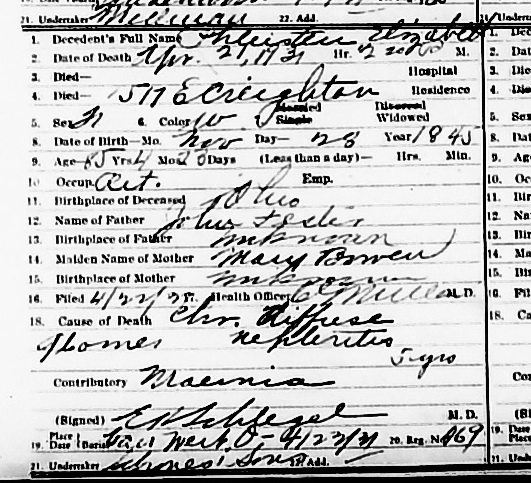 21. Undertaker Millman 22. Add.
1. Decedent's Full Name Elizabeth
2. Date of Death Apr. 21, 1931 Hr. M.
3. Died— Hospital
4. Died— 517 E Creighton Residence
5. Sex F 6. Color W Married Single Divorced Widowed
8. Date of Birth—Mo. Nov Day— 28 Year 1845
9. Age— 85 Yrs 4 Mo. Days (Less than a day)— Hrs. Min.
10 Occup. Ret. Emp.
11. Birthplace of Deceased Ohio
12. Name of Father John Foster
13. Birthplace of Father unknown
14. Maiden Name of Mother Mary Bowen
15. Birthplace of Mother unknown
16. Filed 4/22/ 17. Health Officer M.D.
18. Cause of Death Chr. Diffuse
Glomer Nephritis
5 yrs
Contributory Uraemia
(Signed) E K Schlegel M. D.
19. Place Date (Burial) Van Wert, O— 4/23/31 20. Reg. No. 469
21. Undertaker Sons 22. Add.